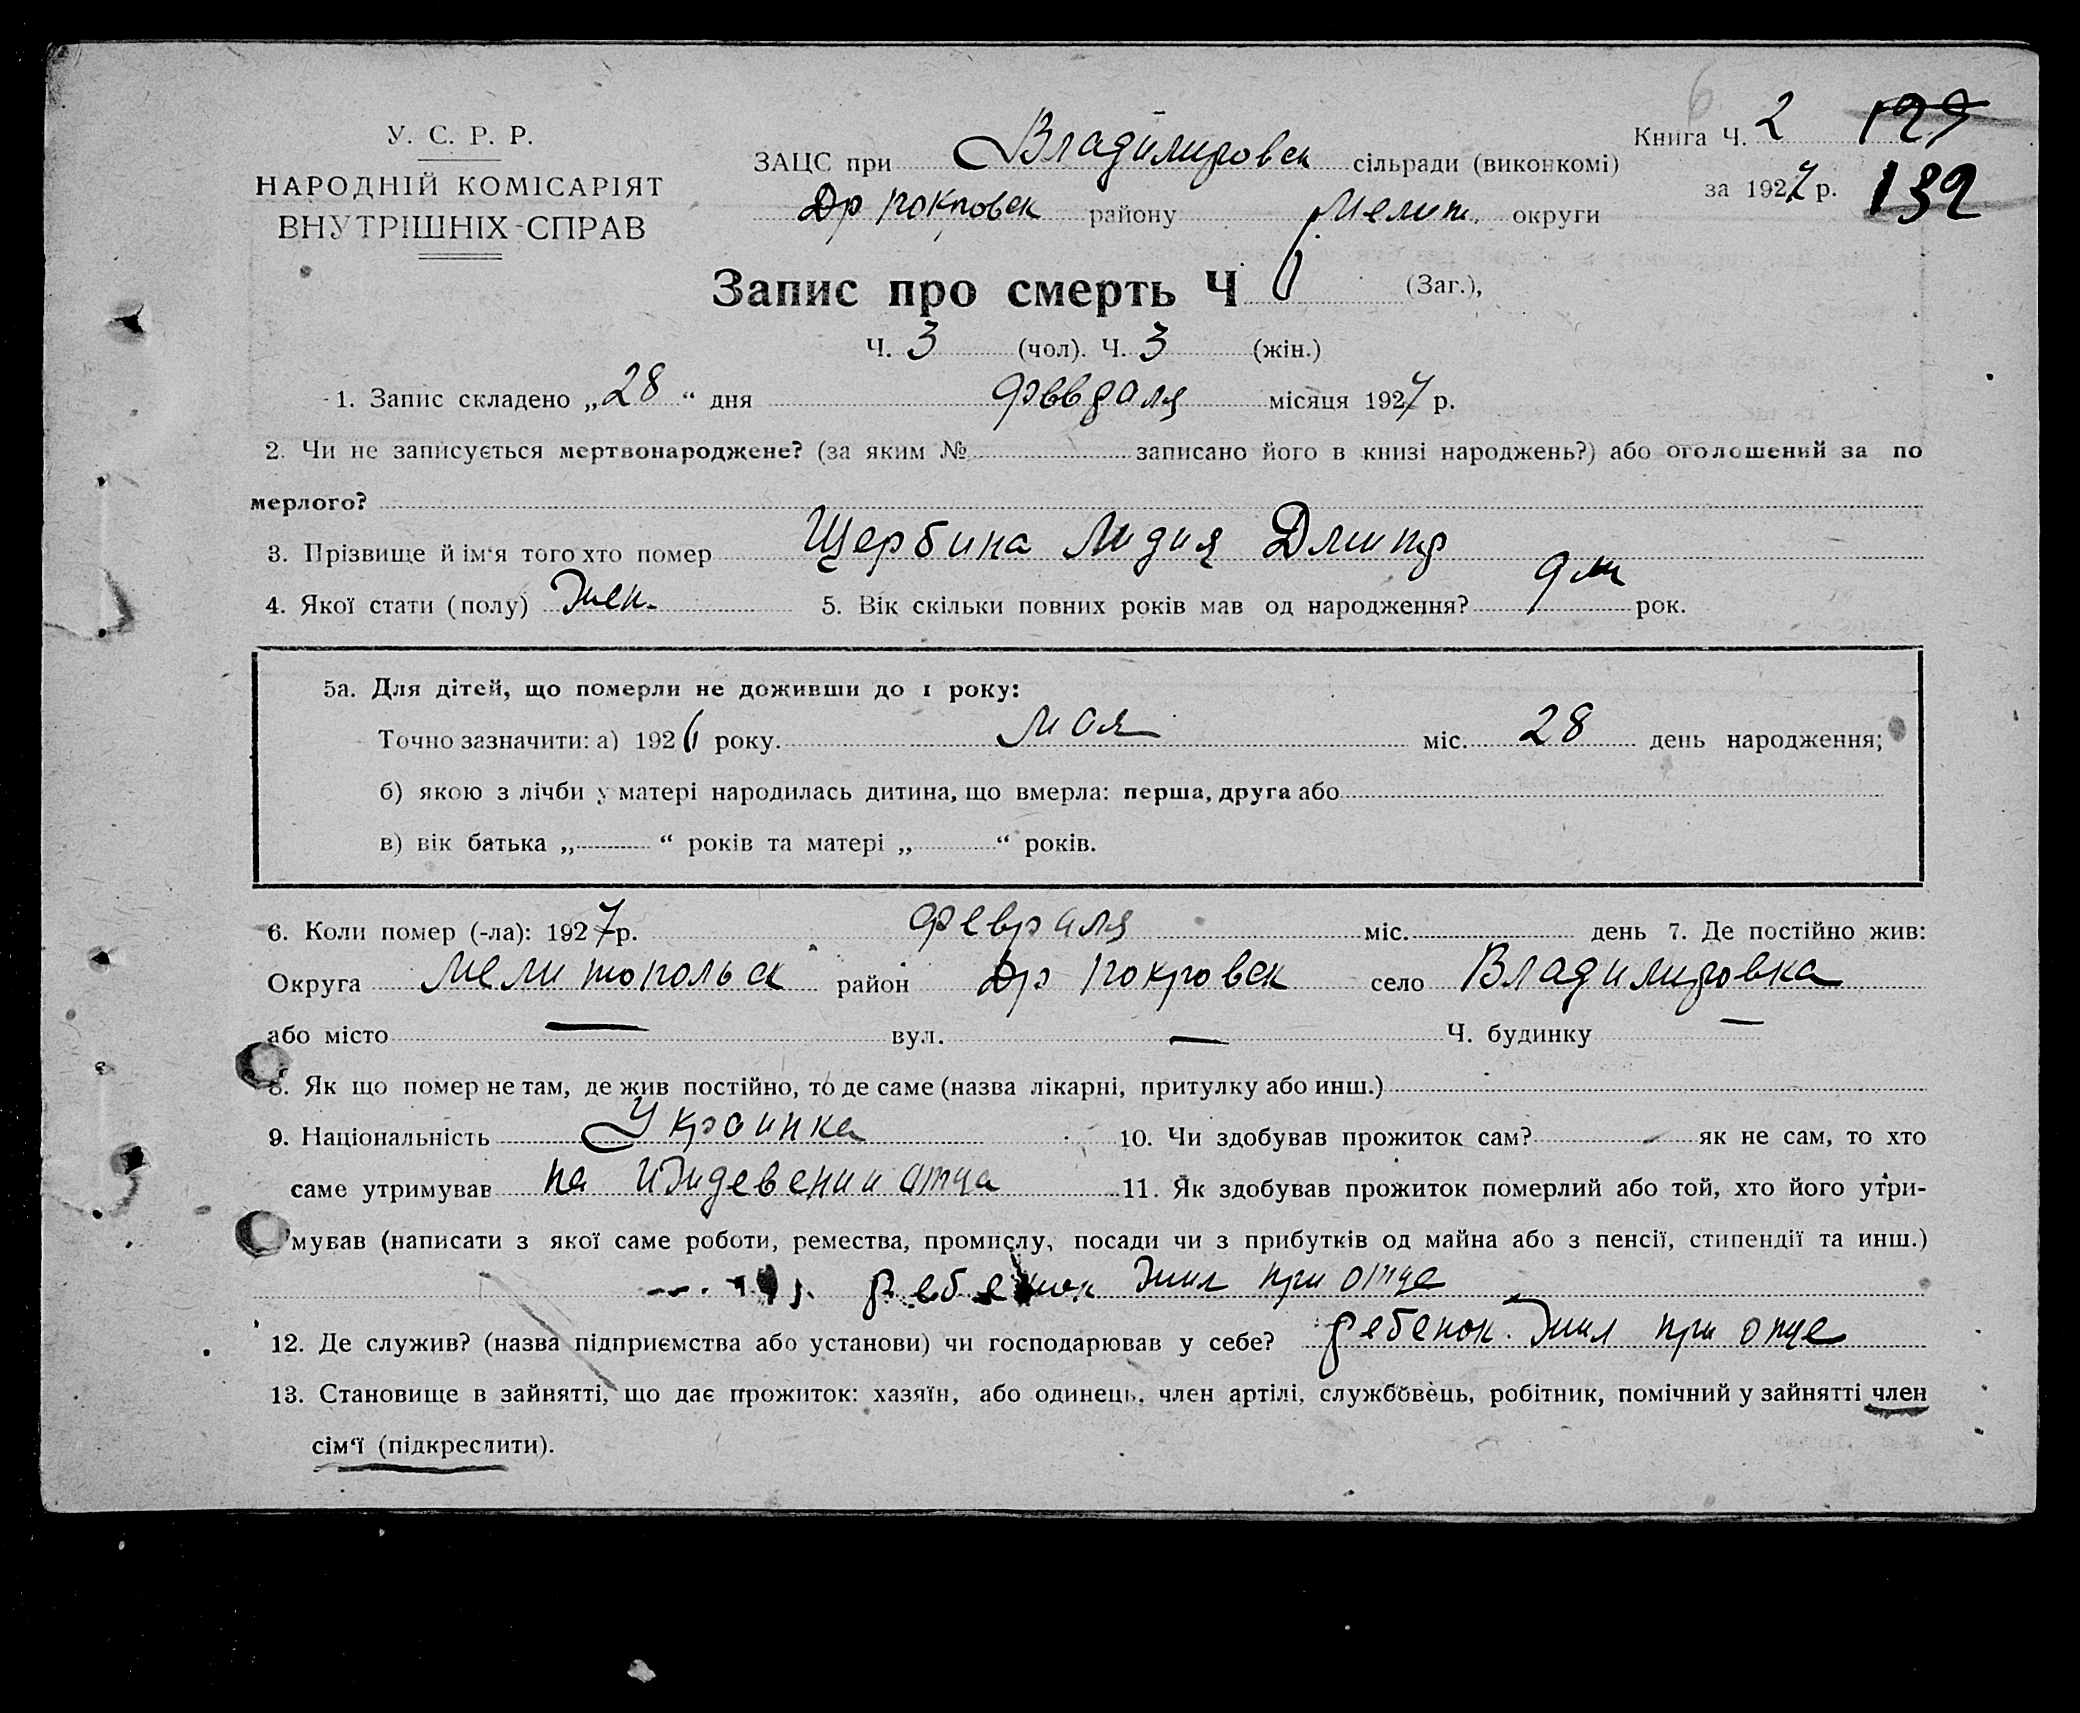 У. С. Р. Р.
НАРОДНІЙ КОМІСАРІЯТ
ВНУТРІШНІХ-СПРАВ
ЗАЦС при Владимировск сільради (виконкомі)
Др покровск району Мелит. округи
Книга Ч. 2
за 1927 р. 132
Запис про смерть Ч 6 (Заг.),
Ч. 3 (чол). Ч. 3 (жін.)
1. Запис складено „28“ дня февраля місяця 1927 р.
2. Чи не записується мертвонароджене? (за яким № записано його в книзі народжень?) або оголошений за по
мерлого?
3. Прізвище й ім‘я того хто помер Щербина Лидия Дмитр
4. Якої стати (полу) Жен. 5. Вік скільки повних років мав од народження? 9 м рок.
5а. Для дітей, що померли не доживши до 1 року:
Точно зазначити: а) 1926 року. мая міс. 28 день народження;
б) якою з лічби у матері народилась дитина, що вмерла: перша, друга або
в) вік батька „ “ років та матері „ “ років.
6. Коли помер (-ла): 1927 р. февраля міс. день 7. Де постійно жив:
Округа Мелитопольск район Др покровск село Владимировка
або місто — вул. — Ч. будинку —
8. Як що помер не там, де жив постійно, то де саме (назва лікарні, притулку або инш.)
9. Національність Украинка 10. Чи здобував прожиток сам? як не сам, то хто
саме утримував на иждевении отца 11. Як здобував прожиток померлий або той, хто його утри-
мував (написати з якої саме роботи, ремества, промислу, посади чи з прибутків од майна або з пенсії, стипендії та инш.)
ребенок жил при отце
12. Де служив? (назва підприємства або установи) чи господарював у себе? ребенок. жил при отце
13. Становище в зайнятті, що дає прожиток: хазяїн, або одинець, член артілі, службовець, робітник, помічний у зайнятті член
сім‘ї (підкреслити).